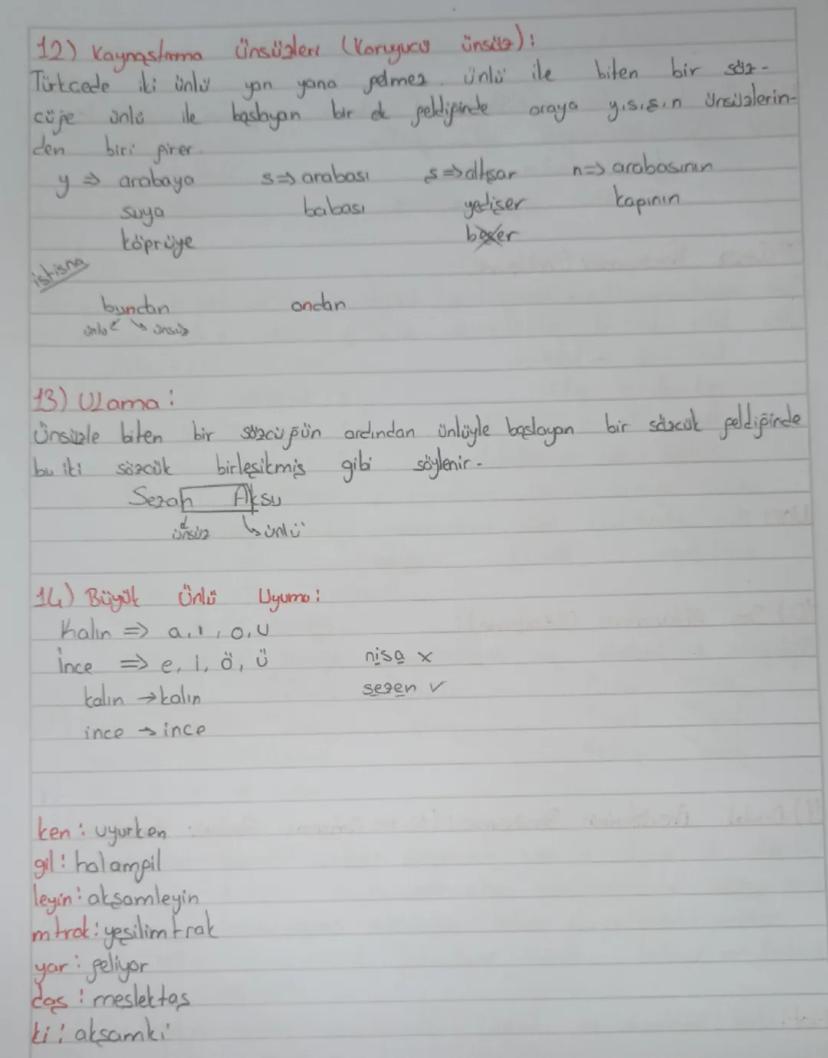 12) Kaynaştırma Ünsüzleri (Koruyucu ünsüz):
Türkcede iki ünlü yan yana gelmez. Ünlü ile biten bir söz-
cüğe ünlü ile başlayan bir ek geldiğinde araya y,s,ş,n ünsüzlerin-
den biri girer.
y => arabaya s=> arabası ş=> altışar n=> arabasının
suya babası yedişer kapının
köprüye beşer
istisna
bundan ondan
ünlü ünsüz
13) Ulama:
Ünsüzle biten bir sözcüğün ardından ünlüyle başlayan bir sözcük geldiğinde
bu iki sözcük birleşikmiş gibi söylenir.
Sezan Aksu
ünsüz ünlü
14) Büyük Ünlü Uyumu:
Kalın => a, ı, o, u
İnce => e, i, ö, ü nisa x
kalın → kalın sezen ✓
ince → ince
ken: uyurken
gil: halamgil
leyin: akşamleyin
mtrak: yeşilimtrak
yor: geliyor
daş: meslektaş
ki: akşamki